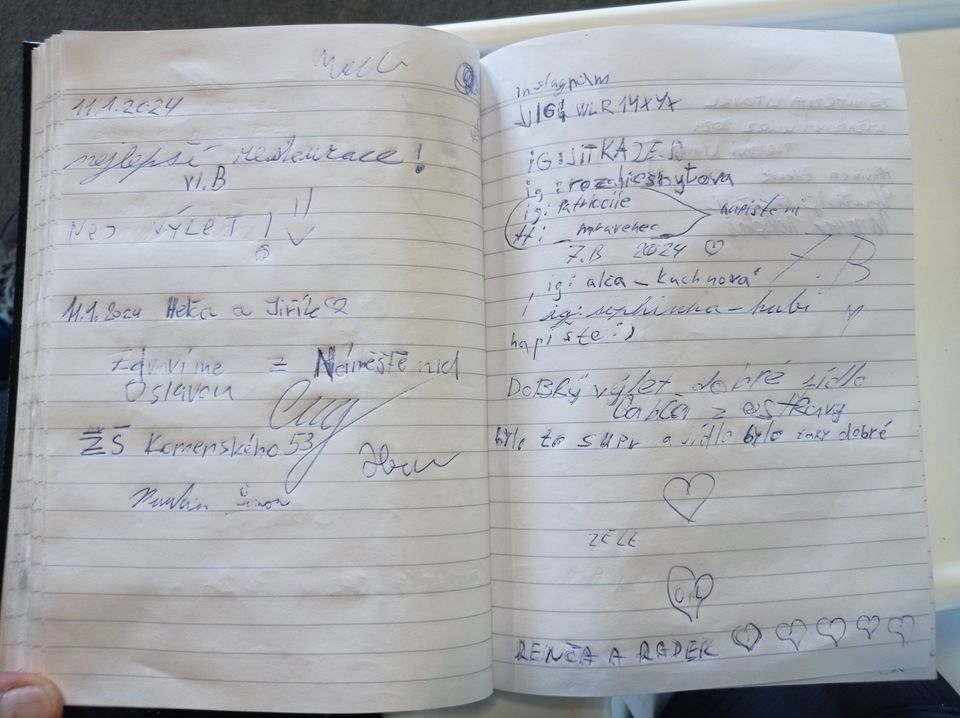 11.1.2024
nejlepší restaurace!
VI.B
NEJ VÝLET!
11.1.2024 Helča a Jiřík
Zdravíme z Náměště nad
Oslavou
ZŠ Komenského 53
Šimon
instagram
IG:JITKAZER
ig: rozaliesnytova
ig: Patriciije
tt: mravenec
napište mi
7.B 2024
7.B
ig: alca-kuchnova
napište:)
DOBRÝ výlet dobré jídlo
z Ostravy
bylo to supr a jídlo bylo taky dobré
ZELE
RENČA A RADEK